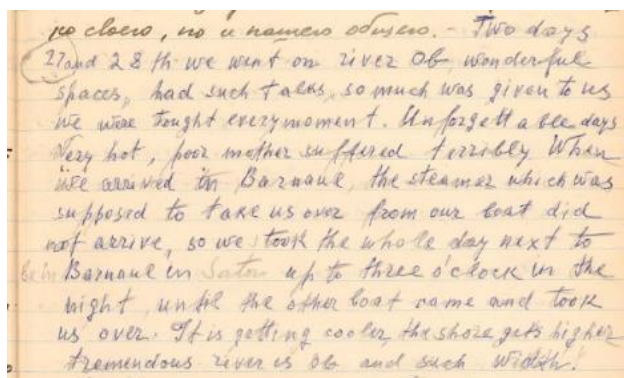 но и нашего общего. - Two days
27 and 28th we went on river Ob, wonderful
spaces, had such talks, so much was given to us
we were tought every moment. Unforgettable days
very hot, poor mother suffered terribly When
we arrived in Barnaul, the steamer which was
supposed to take us over from our boat did
not arrive, so we took the whole day next to
Barnaul in up to three o'clock in the
night, until the other boat came and took
us over. It is getting cooler, the shore gets higher
tremendous river is Ob and such width!